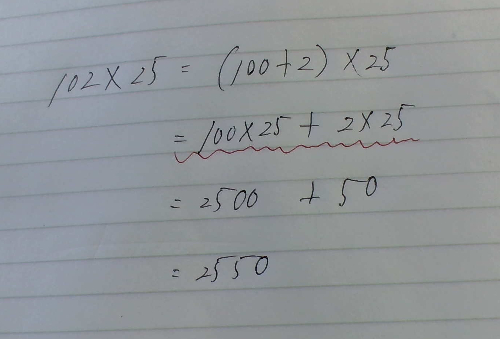 102×25 = (100+2)×25
= 100×25 + 2×25
= 2500 + 50
= 2550